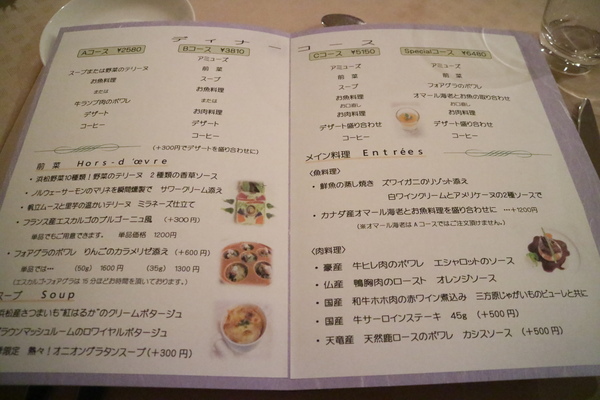 ディナーコース
Aコース ¥2580
スープまたは野菜のテリーヌ
お魚料理
または
牛ランプ肉のポワレ
デザート
コーヒー
Bコース ¥3810
アミューズ
前 菜
スープ
お魚料理
または
お肉料理
デザート
コーヒー
(+300円でデザートを盛り合わせに)
前 菜 Hors-d'œvre
・浜松野菜10種類!野菜のテリーヌ 2種類の香草ソース
・ノルウェーサーモンのマリネを瞬間燻製で サワークリーム添え
・帆立ムースと里芋の温かいテリーヌ ミラネーズ仕立て
・フランス産エスカルゴのブルゴーニュ風 (+300円)
単品でもご用意できます。 単品価格 1200円
・フォアグラのポワレ りんごのカラメリゼ添え (+600円)
単品では… (50g) 1600円 (35g) 1300円
(エスカルゴ・フォアグラは15分ほどお時間を頂いております。)
スープ Soup
浜松産さつまいも"紅はるか"のクリームポタージュ
ブラウンマッシュルームのロワイヤルポタージュ
限定 熱々!オニオングラタンスープ(+300円)
Cコース ¥5150
アミューズ
前 菜
スープ
お魚料理
お口直し
お肉料理
デザート盛り合わせ
コーヒー
Specialコース ¥6480
アミューズ
前 菜
フォアグラのポワレ
オマール海老とお魚の取り合わせ
お口直し
お肉料理
デザート盛り合わせ
コーヒー
メイン料理 Entrées
〈魚料理〉
・鮮魚の蒸し焼き ズワイガニのリゾット添え
白ワインクリームとアメリケーヌの2種ソースで
・カナダ産オマール海老とお魚料理を盛り合わせに …+1200円
(※オマール海老はAコースではご注文頂けません。)
〈肉料理〉
・豪産 牛ヒレ肉のポワレ エシャロットのソース
・仏産 鴨胸肉のロースト オレンジソース
・国産 和牛ホホ肉の赤ワイン煮込み 三方原じゃがいものピューレと共に
・国産 牛サーロインステーキ 45g (+500円)
・天竜産 天然鹿ロースのポワレ カシスソース (+500円)